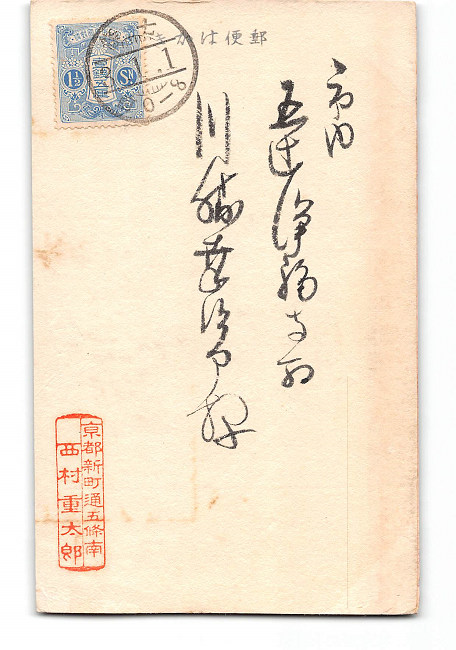 郵便はがき
市内
五辻浄福寺町
川勝喜治郎様
京都新町通五條南
西村重太郎
1½ Sn